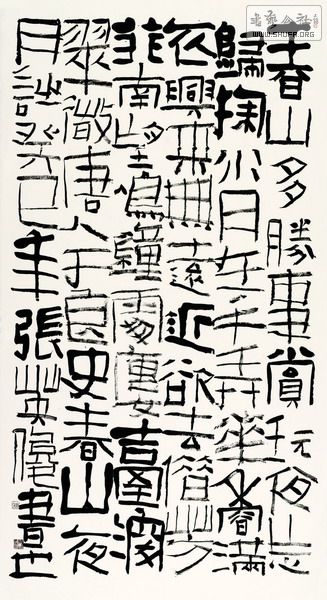 春山多勝事賞玩夜忘
歸掬水月在手弄花香滿
衣興來無遠近欲去惜芳
菲南望鳴鐘處樓臺深
翠微唐人于良史春山夜
月詩癸巳年張英俊書
WWW.SHUFA.ORG